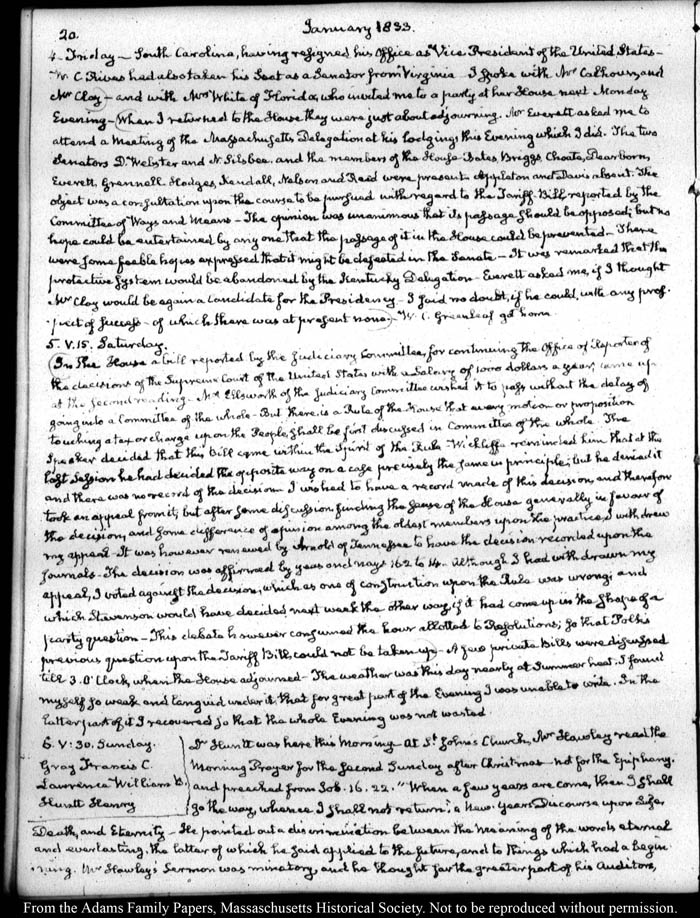 20.
January 1833.
4. Friday — South Carolina, having resigned his Office as Vice President of the United States —
W. C. Rives had also taken his Seat as a Senator from Virginia. I spoke with Mr Calhoun, and
Mr Clay — and with Mrs White of Florida, who invited me to a party at her House next Monday
Evening — When I returned to the House they were just about adjourning. Mr Everett asked me to
attend a Meeting of the Massachusetts Delegation at his lodgings this Evening which I did. The two
Senators D. Webster and N. Silsbee, and the members of the House Bates, Briggs, Choate, Dearborn,
Everett, Grennell, Hodges, Kendall, Nelson and Reed were present — Appleton and Davis absent. The
object was a consultation upon the course to be pursued with regard to the Tariff Bill reported by the
Committee of Ways and Means — The opinion was unanimous that its passage should be opposed; but no
hope could be entertained by any one that the passage of it in the House could be prevented — There
were some feeble hopes expressed that it might be defeated in the Senate — It was remarked that the
protective system would be abandoned by the Kentucky Delegation — Everett asked me, if I thought
Mr Clay would be again a Candidate for the Presidency — I said no doubt, if he could, with any pros-
pect of success — of which there was at present none — W. C. Greenleaf got home.
5. V.15. Saturday.
In the House a bill reported by the Judiciary Committee, for continuing the Office of Reporter of
the decisions of the Supreme Court of the United States with a Salary of 1000 dollars a year, came up
at the second reading — Mr Ellsworth of the Judiciary Committee wished it to pass without the delay of
going into a Committee of the whole — But there is a Rule of the House that every motion or proposition
touching a tax or charge upon the People, shall be first discussed in Committee of the whole. The
Speaker decided that this bill came within the Spirit of the Rule. Wickliffe reminded him that at the
last Session he had decided the opposite way on a case precisely the same in principle; but he denied it
and there was no record of the decision. I wished to have a record made of this decision, and therefore
took an appeal from it; but after some discussion, finding the sense of the House generally in favour of
the decision, and some difference of opinion among the oldest members upon the practice, I withdrew
my appeal — It was however renewed by Arnold of Tennessee to have the decision recorded upon the
Journals — The decision was affirmed by yeas and nays 162 to 14. Although I had withdrawn my
appeal, I voted against the decision, which as one of construction upon the Rule was wrong; and
which Stevenson would have decided next week the other way, if it had come up in the shape of a
party question — This debate however consumed the hour allotted to Resolutions; so that Polk's
previous question upon the Tariff Bill, could not be taken up — A few private Bills were discussed
till 3. O'Clock, when the House adjourned — The weather was this day nearly at Summer heat. I found
myself so weak and languid under it that for great part of the Evening I was unable to write. In the
latter part of it I recovered so that the whole Evening was not wasted.
6. V:30. Sunday.
Gray Francis C.
Lawrence William B.
Huntt Henry
Dr Huntt was here this Morning. At St John's Church, Mr Hawley read the
Morning Prayer for the second Sunday after Christmas — not for the Epiphany.
and preached from Job. 16. 22. "When a few years are come, then I shall
go the way, whence I shall not return": a New-Years Discourse upon Life,
Death, and Eternity — He pointed out a discrimination between the meaning of the words eternal
and everlasting, the latter of which he said applied to the future, and to things which had a begin-
ning. Mr Hawley's Sermon was minatory, and he thought for the greater part of his Auditors,
From the Adams Family Papers, Massachusetts Historical Society. Not to be reproduced without permission.